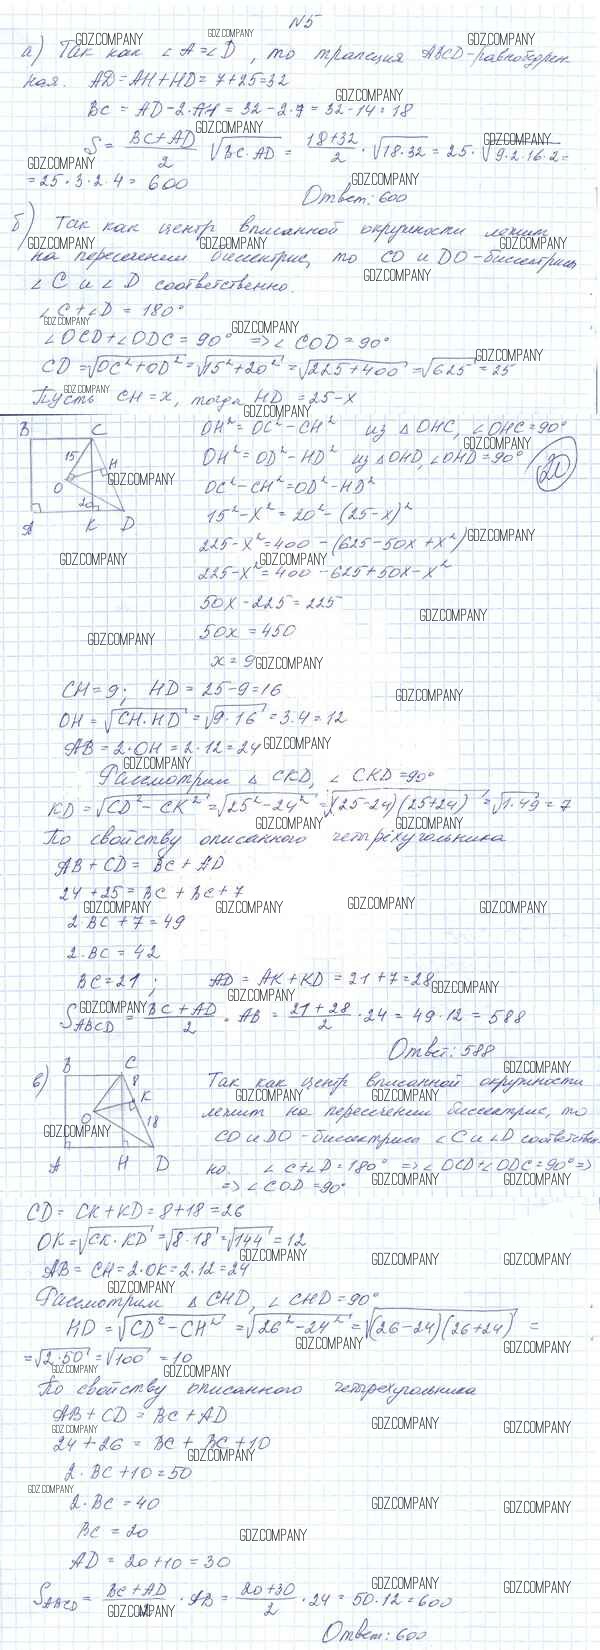 №5
а) Так как ∠A=∠D, то трапеция ABCD-равнобедрен-
ная. AD=AH+HD=7+25=32
BC = AD-2·AH = 32-2·7 = 32-14=18
S = (BC+AD)/2 · √(BC·AD) = (18+32)/2 · √(18·32) = 25·√(9·2·16·2) =
=25·3·2·4= 600
Ответ: 600
б) Так как центр вписанной окружности лежит
на пересечении биссектрис, то CO и DO-биссектрисы
∠C и ∠D соответственно.
∠C+∠D = 180°
∠OCD+∠ODC = 90° => ∠COD=90°
CD = √(OC²+OD²) = √(15²+20²) = √(225+400) = √625 = 25
Пусть CH=x, тогда HD=25-x
B C
15
H
O
20
A K D
OH² = OC²-CH² из △OHC, ∠OHC=90°
OH² = OD²-HD² из △OHD, ∠OHD=90°
20
OC²-CH²=OD²-HD²
15²-x²=20²-(25-x)²
225-x²=400-(625-50x+x²)
225-x²=400-625+50x-x²
50x-225=225
50x=450
x=9
CH=9; HD=25-9=16
OH = √(CH·HD) = √(9·16) = 3·4=12
AB=2·OH=2·12=24
Рассмотрим △CKD, ∠CKD=90°
KD = √(CD²-CK²) = √(25²-24²) = √((25-24)(25+24)) = √(1·49) = 7
По свойству описанного четырёхугольника
AB+CD = BC+AD
24+25=BC+BC+7
2·BC+7=49
2·BC=42
BC=21; AD=AK+KD=21+7=28
S_ABCD = (BC+AD)/2 · AB = (21+28)/2 · 24 = 49·12=588
Ответ: 588
в) B C
8
K
O
18
A H D
Так как центр вписанной окружности
лежит на пересечении биссектрис, то
CO и DO-биссектрисы ∠C и ∠D соответствен-
но. ∠C+∠D=180° => ∠OCD+∠ODC=90° =>
=> ∠COD=90°
CD = CK+KD=8+18=26
OK=√(CK·KD) = √(8·18) = √144 = 12
AB=CH=2·OK=2·12=24
Рассмотрим △CHD, ∠CHD=90°
HD = √(CD²-CH²) = √(26²-24²) = √((26-24)(26+24)) =
=√(2·50) = √100 = 10
По свойству описанного четырёхугольника
AB+CD = BC+AD
24+26 = BC+BC+10
2·BC+10=50
2·BC=40
BC=20
AD=20+10=30
S_ABCD = (BC+AD)/2 · AB = (20+30)/2 · 24 = 50·12=600
Ответ: 600
GDZ.COMPANY